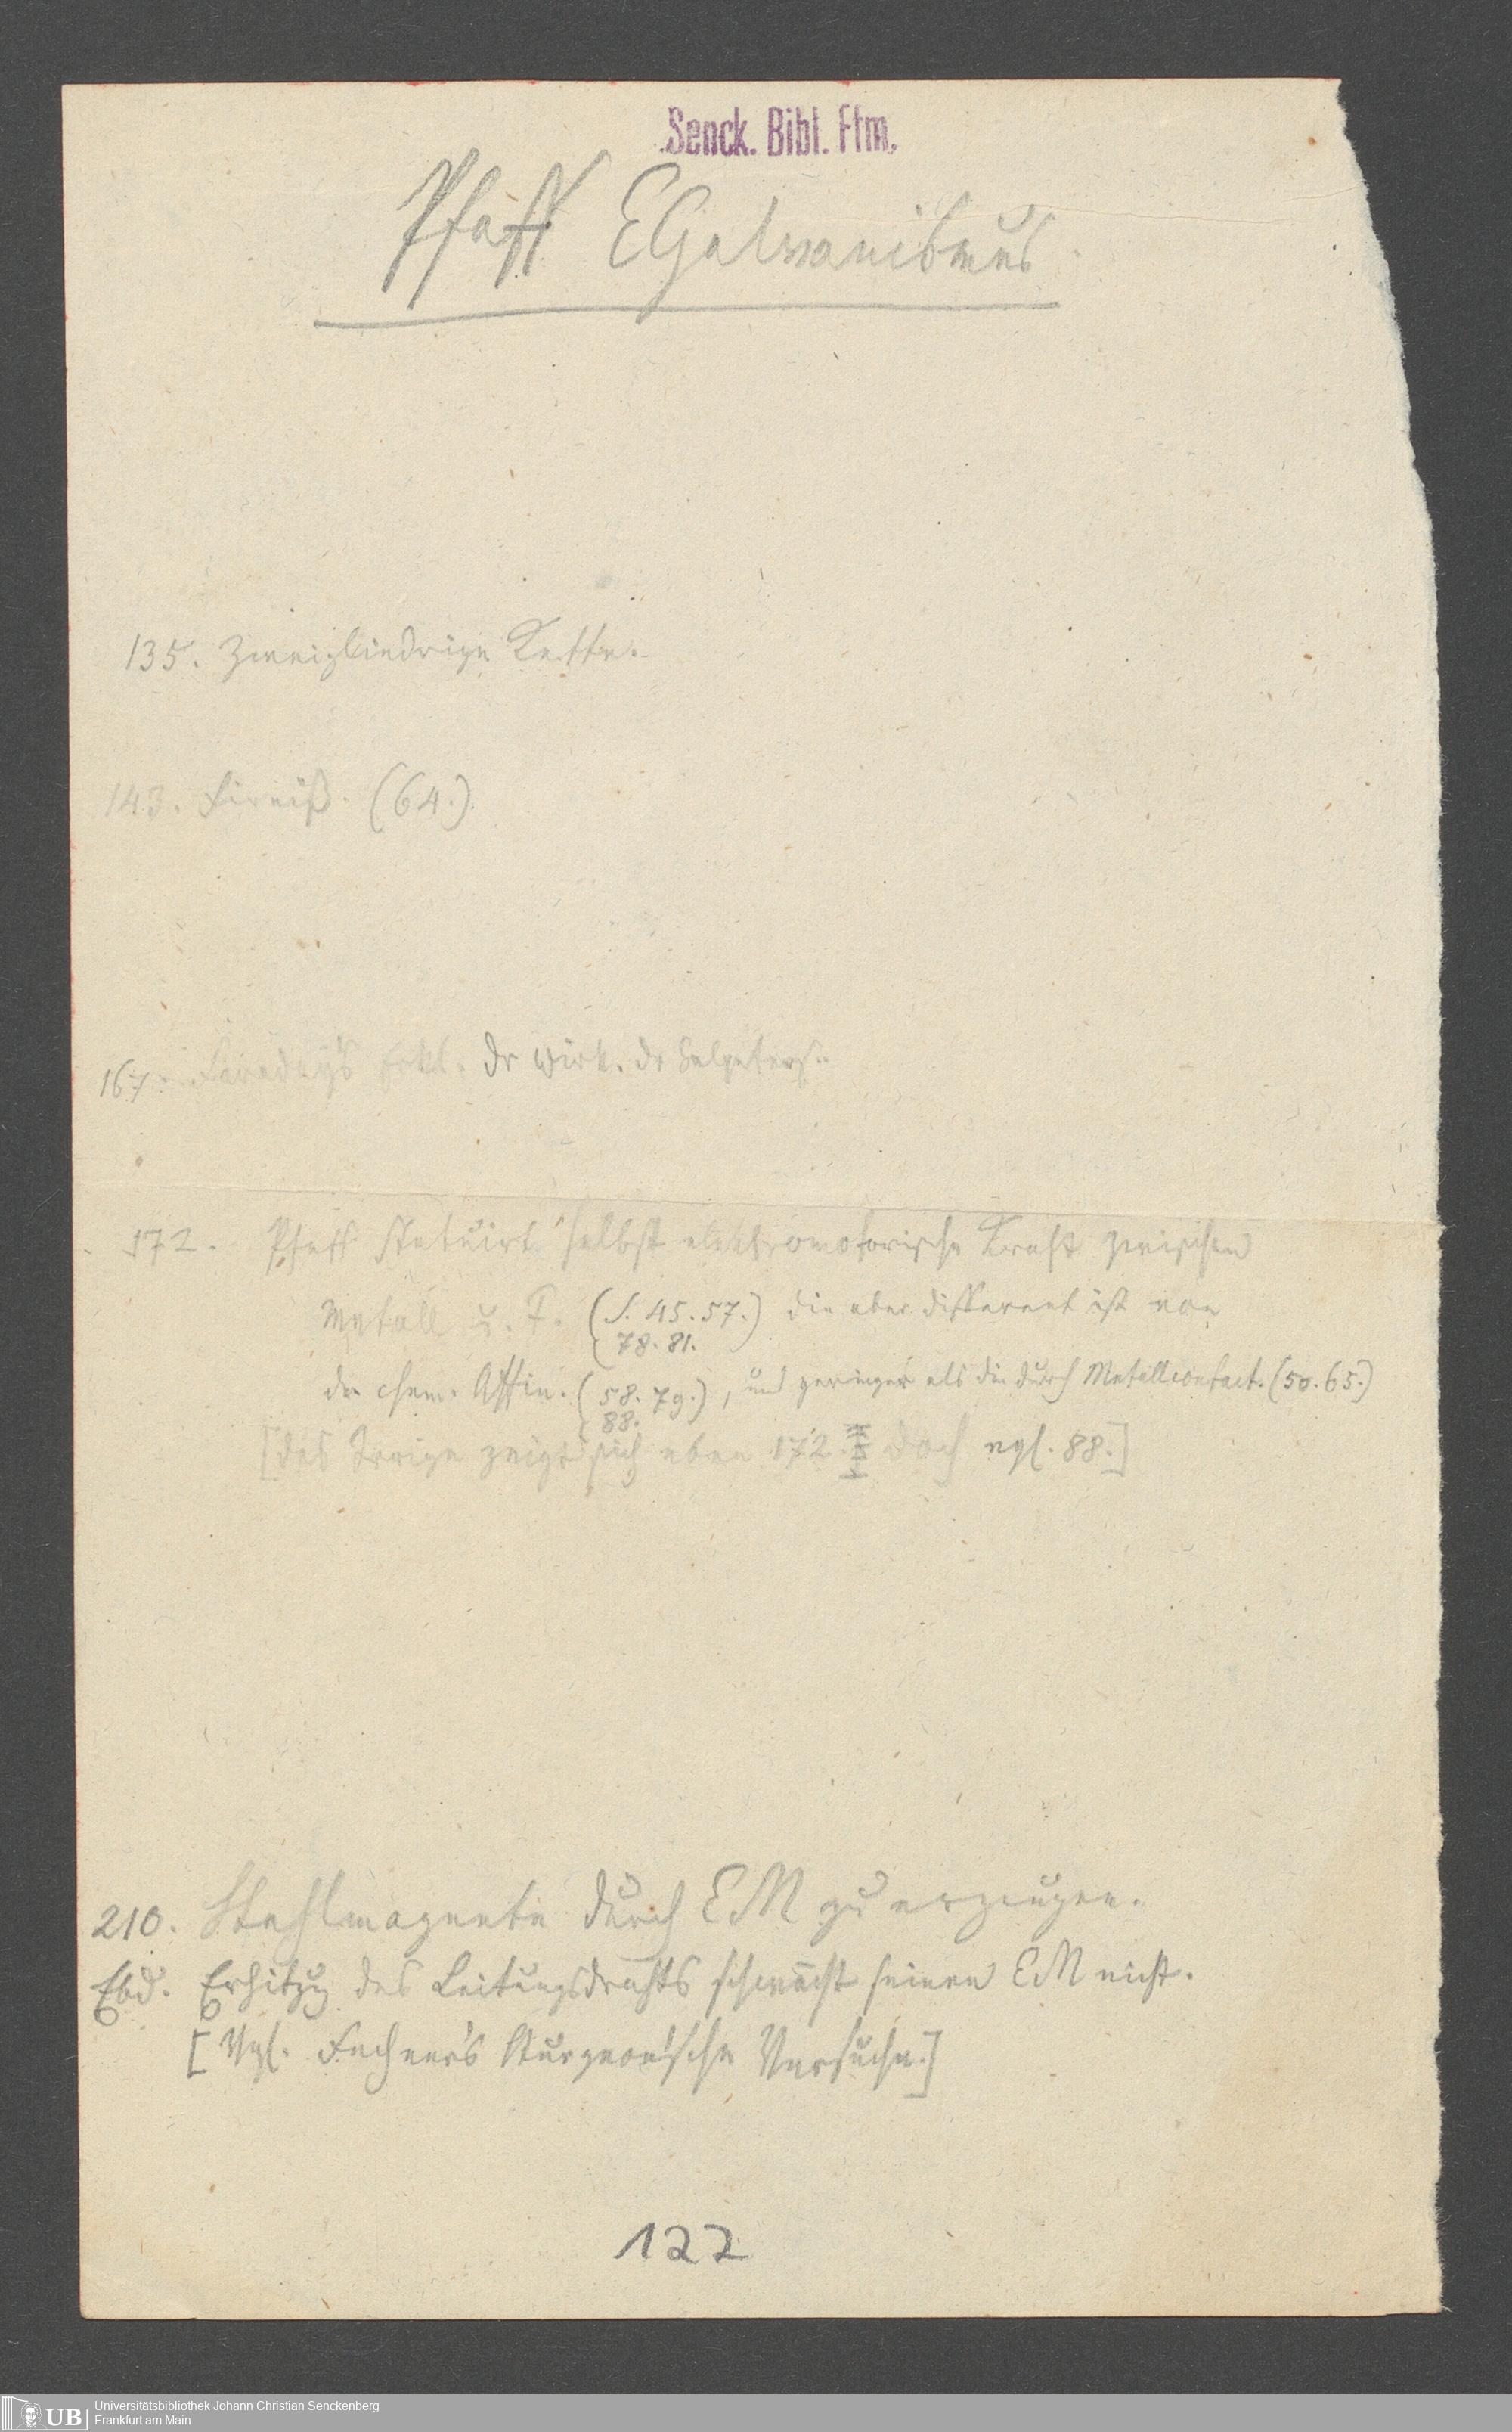 Senck. Bibl. Ffm.
Pfaff EGalvanismus
135. Zweigliedrige Kette.
143. Firniß. (64.)
167. Faraday's Erkl. dr Wirk. dr Salpeters.
172. Pfaff statuirt selbst elektromotorische Kraft zwischen
Metall u. F. (S. 45. 57.) die aber different ist von
78. 81.
der chem. Affin. (58. 79.), und geringer als die durch Metallcontact. (50. 65.)
88.
[das Irrige zeigt sich eben 172. doch vgl. 88.]
210. Stahlmagnete durch EM zu erzeugen.
Ebd. Erhitzg des Leitungsdrahts schwächt seinen EM nicht.
[Vgl. Fechner's Sturgeon'sche Versuche.]
122
UB
Universitätsbibliothek Johann Christian Senckenberg
Frankfurt am Main